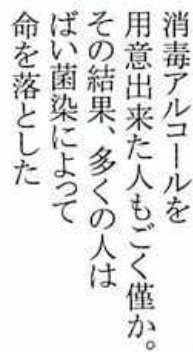 消毒アルコールを
用意出来た人もごく僅か。
その結果、多くの人は
ばい菌染によって
命を落とした